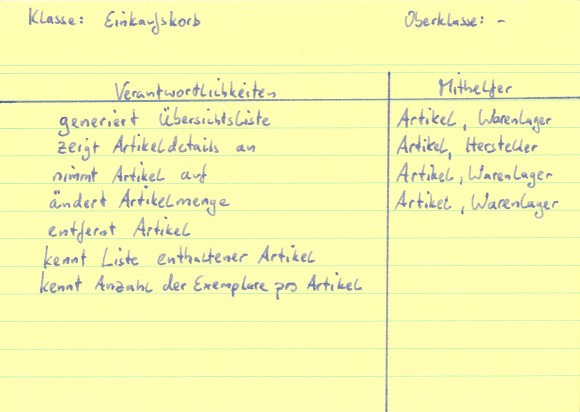 Klasse: Einkaufskorb Oberklasse: -
Verantwortlichkeiten Mithelfer
generiert Übersichtsliste Artikel, Warenlager
zeigt Artikeldetails an Artikel, Hersteller
nimmt Artikel auf Artikel, Warenlager
ändert Artikelmenge Artikel, Warenlager
entfernt Artikel
kennt Liste enthaltener Artikel
kennt Anzahl der Exemplare pro Artikel